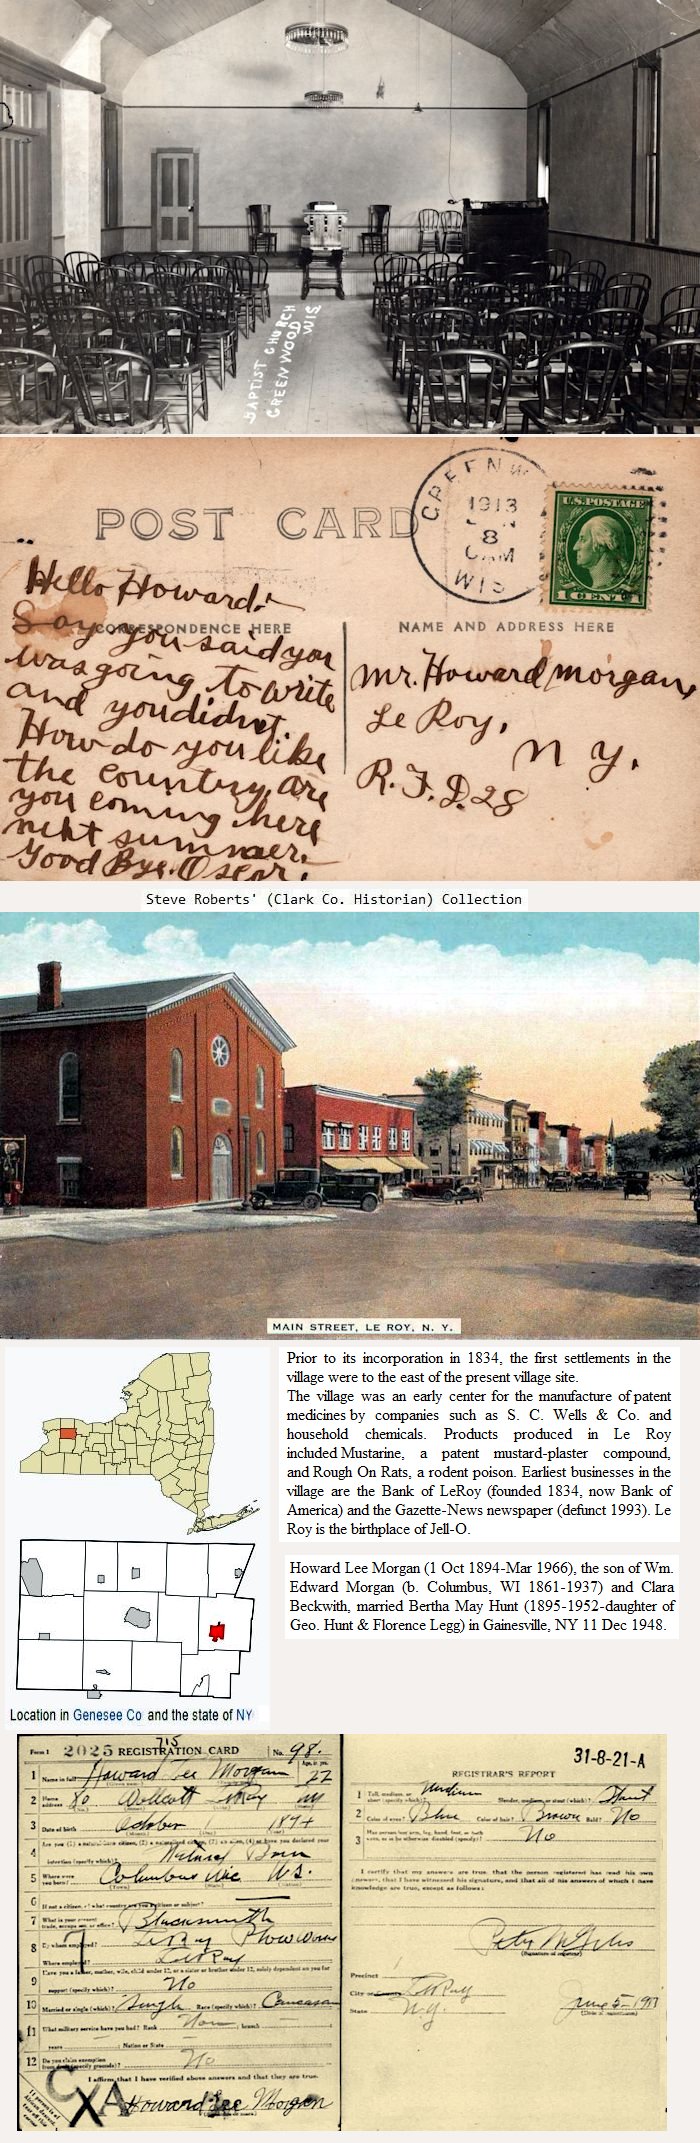 BAPTIST CHURCH
GREENWOOD WIS
POST CARD
GREENW
1913
8
WIS
U.S. POSTAGE
1 CENT
CORRESPONDENCE HERE
NAME AND ADDRESS HERE
Hello Howard:-
Say you said you
was going to write
and you didnt.
How do you like
the country, are
you coming here
next summer.
Good Bye. Oscar.
Mr. Howard Morgan,
Le Roy,
N Y.
R.F.D. 28
Steve Roberts' (Clark Co. Historian) Collection
MAIN STREET, LE ROY, N. Y.
Prior to its incorporation in 1834, the first settlements in the
village were to the east of the present village site.
The village was an early center for the manufacture of patent
medicines by companies such as S. C. Wells & Co. and
household chemicals. Products produced in Le Roy
included Mustarine, a patent mustard-plaster compound,
and Rough On Rats, a rodent poison. Earliest businesses in the
village are the Bank of LeRoy (founded 1834, now Bank of
America) and the Gazette-News newspaper (defunct 1993). Le
Roy is the birthplace of Jell-O.
Howard Lee Morgan (1 Oct 1894-Mar 1966), the son of Wm.
Edward Morgan (b. Columbus, WI 1861-1937) and Clara
Beckwith, married Bertha May Hunt (1895-1952-daughter of
Geo. Hunt & Florence Legg) in Gainesville, NY 11 Dec 1948.
Location in Genesee Co and the state of NY
715
Form 1 2025 REGISTRATION CARD No. 98.
1 Name in full Howard Lee Morgan 22
2 Home address 80 Wolcott Le Roy NY
3 Date of birth October 1 1894
4 Natural Born
5 Where were you born? Columbus Wis U.S.
6 If not a citizen, of what country are you a citizen or subject?
7 What is your present trade, occupation, or office? Blacksmith
8 By whom employed? LeRoy Plow Works
Where employed? LeRoy
9 Have you a father, mother, wife, child under 12, or a sister or brother under 12, solely dependent on you for
support (specify which)? No
10 Married or single (which)? Single Race (specify which)? Caucasian
11 What military service have you had? Rank None ; branch
years ; Nation or State
12 Do you claim exemption from draft (specify grounds)? No
I affirm that I have verified above answers and that they are true.
Howard Lee Morgan
31-8-21-A
REGISTRAR'S REPORT
1 Tall, medium, or short (specify which)? Medium Slender, medium, or stout (which)? Stout
2 Color of eyes? Blue Color of hair? Brown Bald? No
3 No
I certify that my answers are true, that the person registered has read his own
answers, that I have witnessed his signature, and that all of his answers of which I have
knowledge are true, except as follows:
(Signature of registrar)
Precinct 1
City or County LeRoy
State N.Y.
June 5-1917